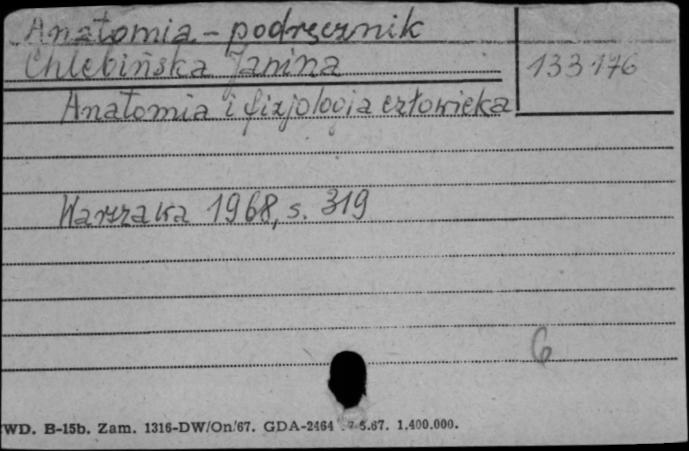 Anatomia - podręcznik
Chlebińska Janina
133176
Anatomia i fizjologia człowieka
Warszawa 1968, s. 319
6
WD. B-15b. Zam. 1316-DW/On/67. GDA-2464 .5.67. 1.400.000.